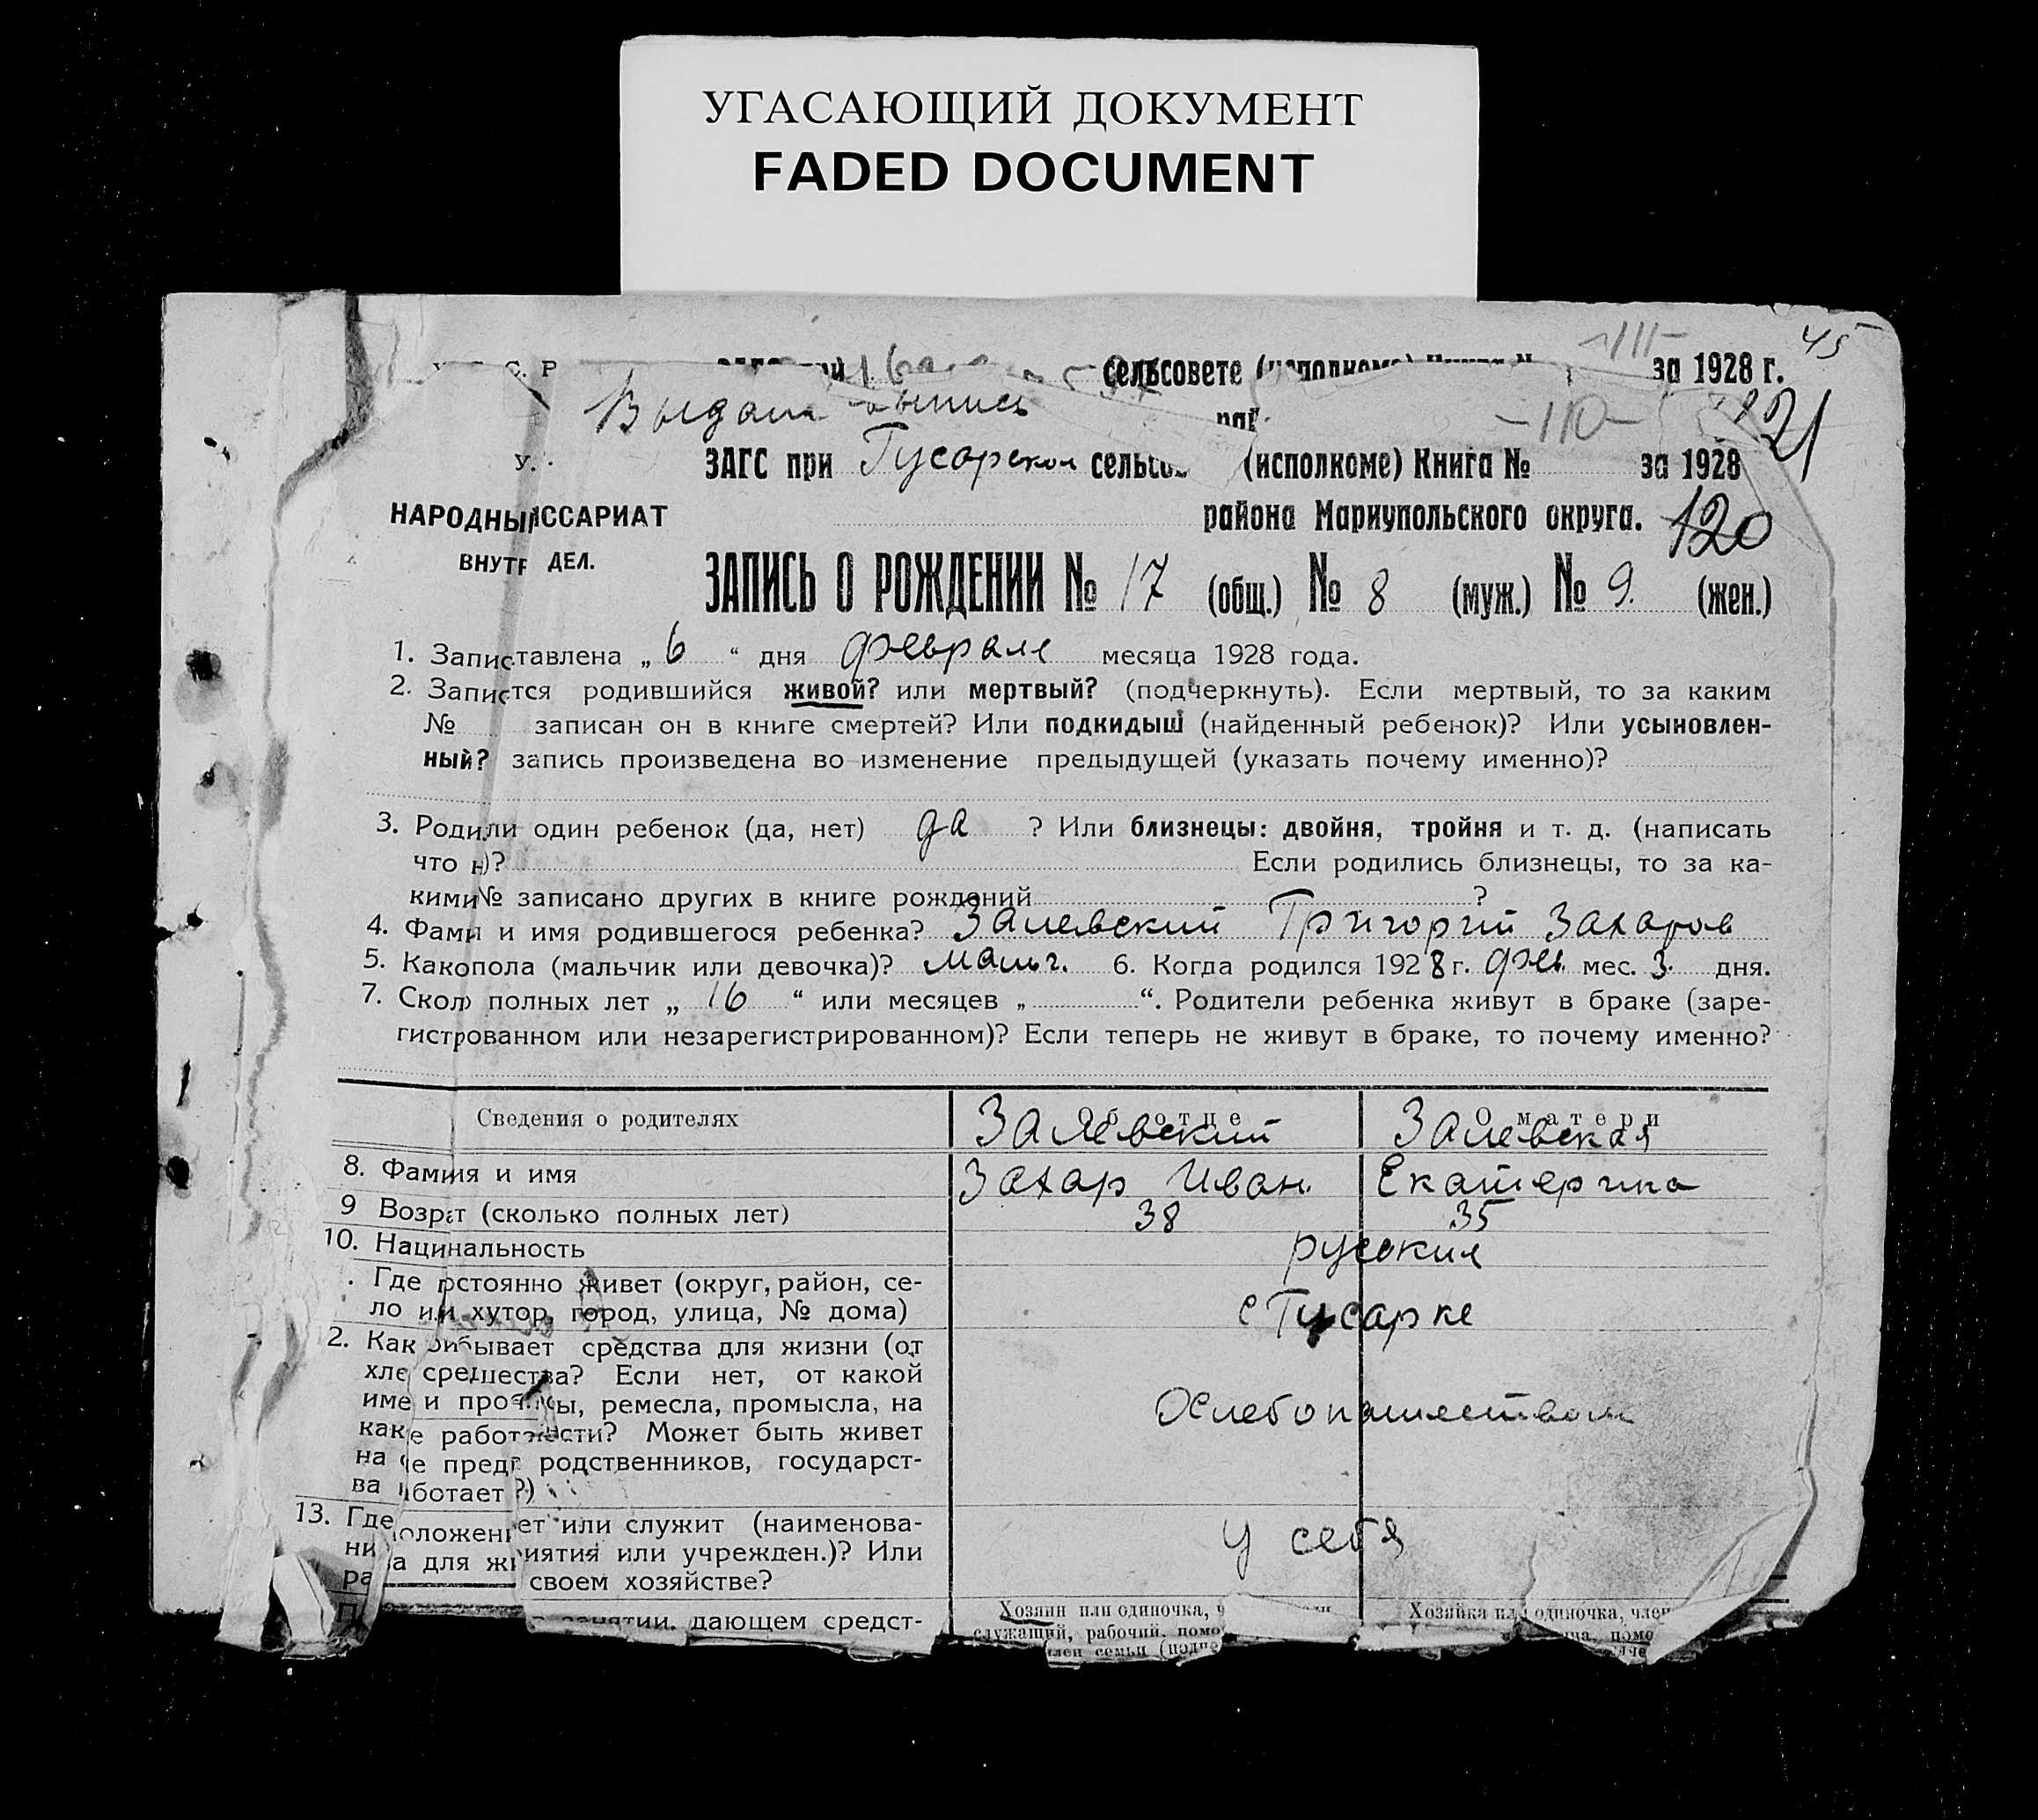 УГАСАЮЩИЙ ДОКУМЕНТ
FADED DOCUMENT
45
сельсовете за 1928 г.
Выдана выпись
-110-
121
ЗАГС при Гусарском (исполкоме) Книга № за 1928
района Мариупольского округа.
120
ВНУТР ДЕЛ.
ЗАПИСЬ О РОЖДЕНИИ № 17 (общ.) № 8 (муж.) № 9. (жен.)
1. Запис тавлена „ 6 “ дня февраля месяца 1928 года.
2. Запис тся родившийся живой? или мертвый? (подчеркнуть). Если мертвый, то за каким
№ записан он в книге смертей? Или подкидыш (найденный ребенок)? Или усыновлен-
ный? запись произведена во изменение предыдущей (указать почему именно)?
3. Роди ли один ребенок (да, нет) да ? Или близнецы: двойня, тройня и т. д. (написать
что н )? Если родились близнецы, то за ка-
кими № записано других в книге рождений ?
4. Фами и имя родившегося ребенка? Залевский Григорий Захаров
5. Како пола (мальчик или девочка)? мальч. 6. Когда родился 1928 г. фев. мес. 3. дня.
7. Скол полных лет „ 16 “ или месяцев „ “. Родители ребенка живут в браке (заре-
гистрованном или незарегистрированном)? Если теперь не живут в браке, то почему именно?
Сведения о родителях Об отце О матери
Залевский Залевская
8. Фами ия и имя Захар Иван. Екатерина
9 Возр т (сколько полных лет) 38 35
10. Наци нальность русские
Где стоянно живет (округ, район, се-
ло или хутор, город, улица, № дома) с Гусарке
2. Как бывает средства для жизни (от
хле ? Если нет, от какой
име и про сы, ремесла, промысла, на
как работ сти? Может быть живет
Хлебопашеством
на пред родственников, государст-
ва ботает ?)
13. Где ет или служит (наименова-
ни иятия или учрежден.)? Или
у себя
ра своем хозяйстве?
занятии, дающем средст-
Хозяин или одиночка, Хозяйка или одиночка, член
служащий, рабочий, помо помо
член семьи